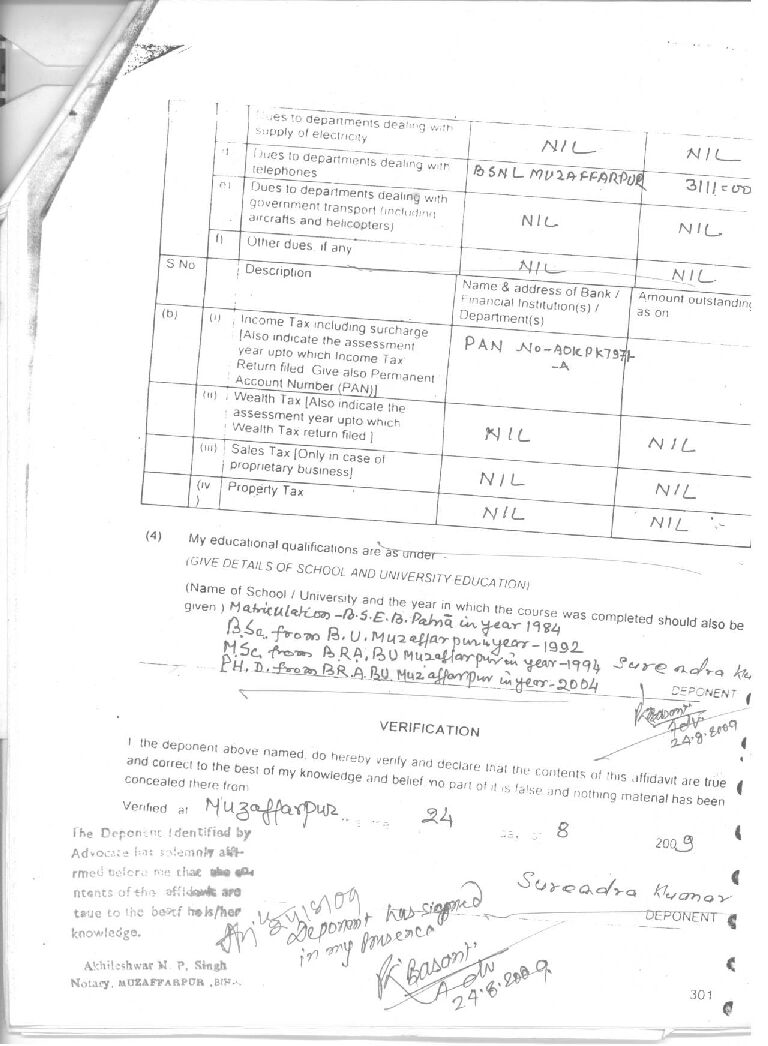 Dues to departments dealing with
supply of electricity
NIL
NIL
Dues to departments dealing with
telephones
BSNL MUZAFFARPUR
3111=00
e) Dues to departments dealing with
government transport (including
aircrafts and helicopters)
NIL
NIL
f) Other dues, if any
NIL
NIL
S No
Description
Name & address of Bank /
Financial Institution(s) /
Department(s)
Amount outstanding
as on
(b) (i) Income Tax including surcharge
[Also indicate the assessment
year upto which Income Tax
Return filed Give also Permanent
Account Number (PAN)]
PAN No-
(ii) Wealth Tax [Also indicate the
assessment year upto which
Wealth Tax return filed ]
NIL
NIL
(iii) Sales Tax [Only in case of
proprietary business]
NIL
NIL
(iv
) Property Tax
NIL
NIL
(4) My educational qualifications are as under
(GIVE DETAILS OF SCHOOL AND UNIVERSITY EDUCATION)
(Name of School / University and the year in which the course was completed should also be
given ) Matriculation - B.S.E.B. Patna in year 1984
BSc. from B.U. Muzaffarpur in year-1992
MSc. from B.R.A. BU Muzaffarpur in year-1994
PH.D. from B.R.A.BU. Muzaffarpur in year-2004
Surendra
DEPONENT
PK Basant
Adv
24.8.2009
VERIFICATION
I the deponent above named, do hereby verify and declare that the contents of this affidavit are true
and correct to the best of my knowledge and belief no part of it is false and nothing material has been
concealed there from
Verified at Muzaffarpur 24 8 2009
The Deponent Identified by
Advocate has solemnly affi-
rmed before me that the co-
ntents of the affidavit are
true to the best of his/her
knowledge.
Akhileshwar N. P. Singh
Notary, MUZAFFARPUR
Deponent has signed
in my presence
PK Basant
Adv
24.8.2009
Surendra Kumar
DEPONENT
301